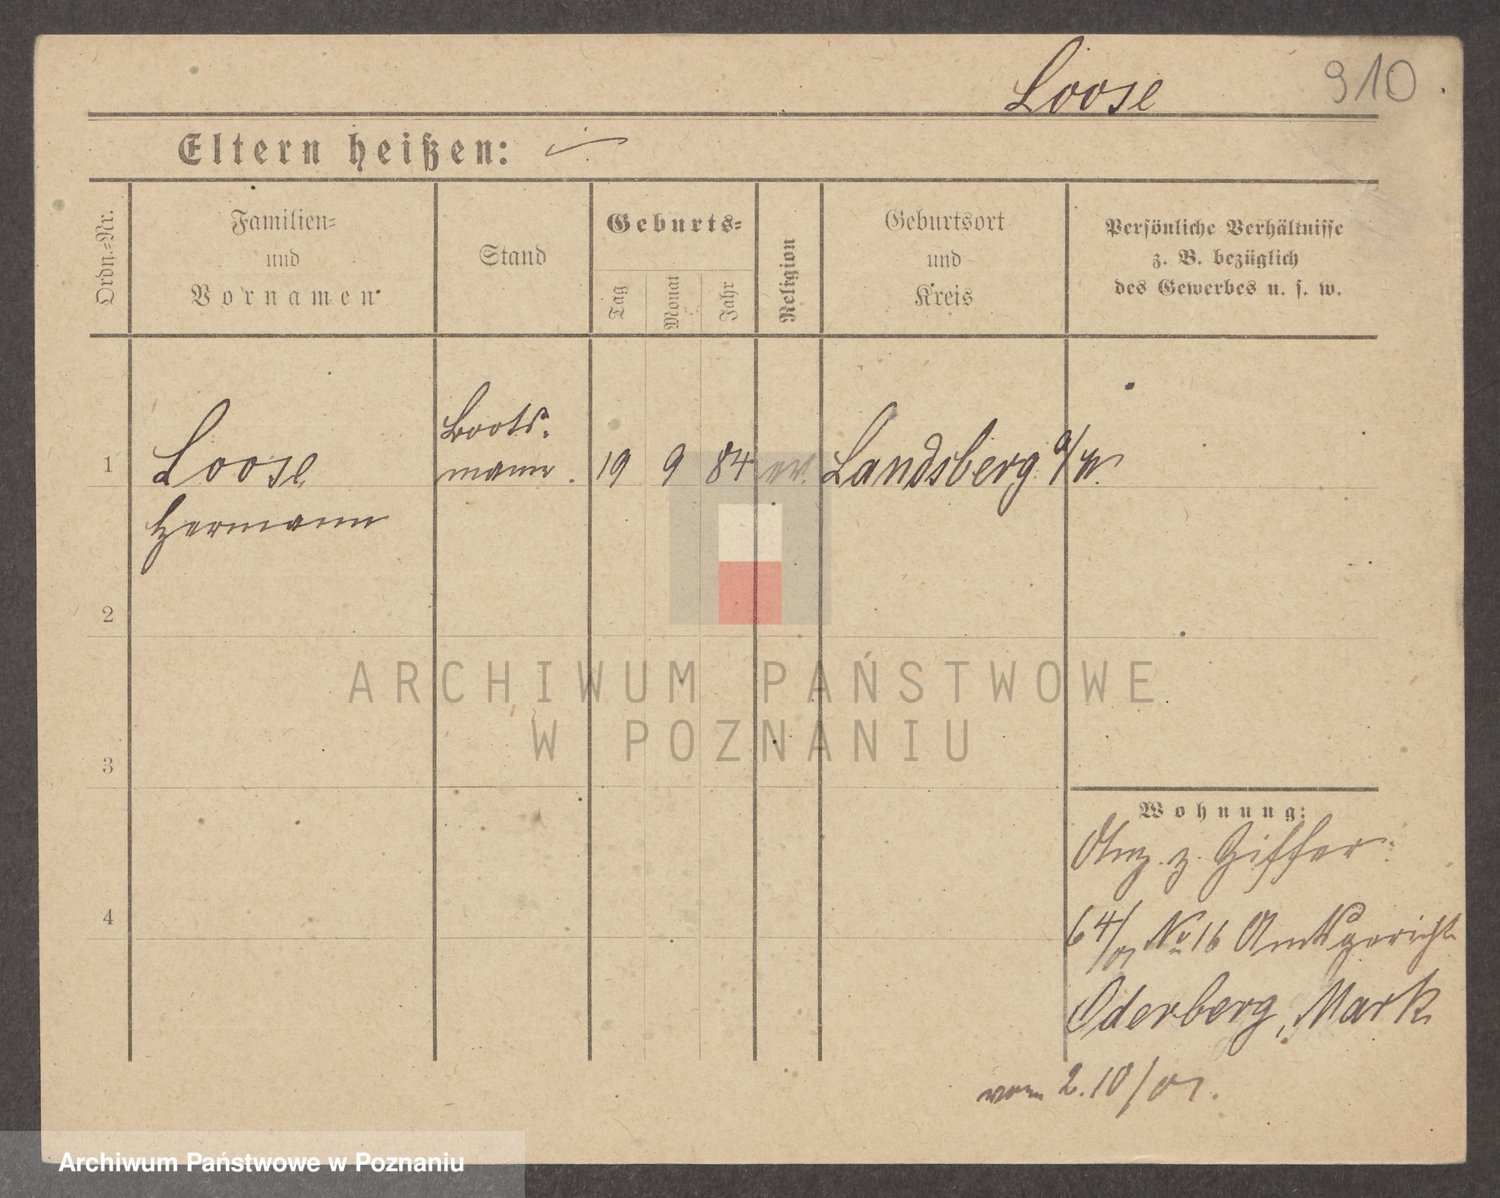 Loose 910.
Eltern heißen:
Ordn.-Nr.
Familien-
und
Vornamen
Stand
Geburts-
Tag
Monat
Jahr
Religion
Geburtsort
und
Kreis
Persönliche Verhältnisse
z. B. bezüglich
des Gewerbes u. s. w.
1
Loose
Hermann
Boots-
mann.
19 9 84 ev. Landsberg a/W.
2
3
4
Wohnung:
z. Ziffer
64/01 No 16 Amtsgericht
Oderberg, Mark
vom 2.10/01.
ARCHIWUM PAŃSTWOWE
W POZNANIU
Archiwum Państwowe w Poznaniu